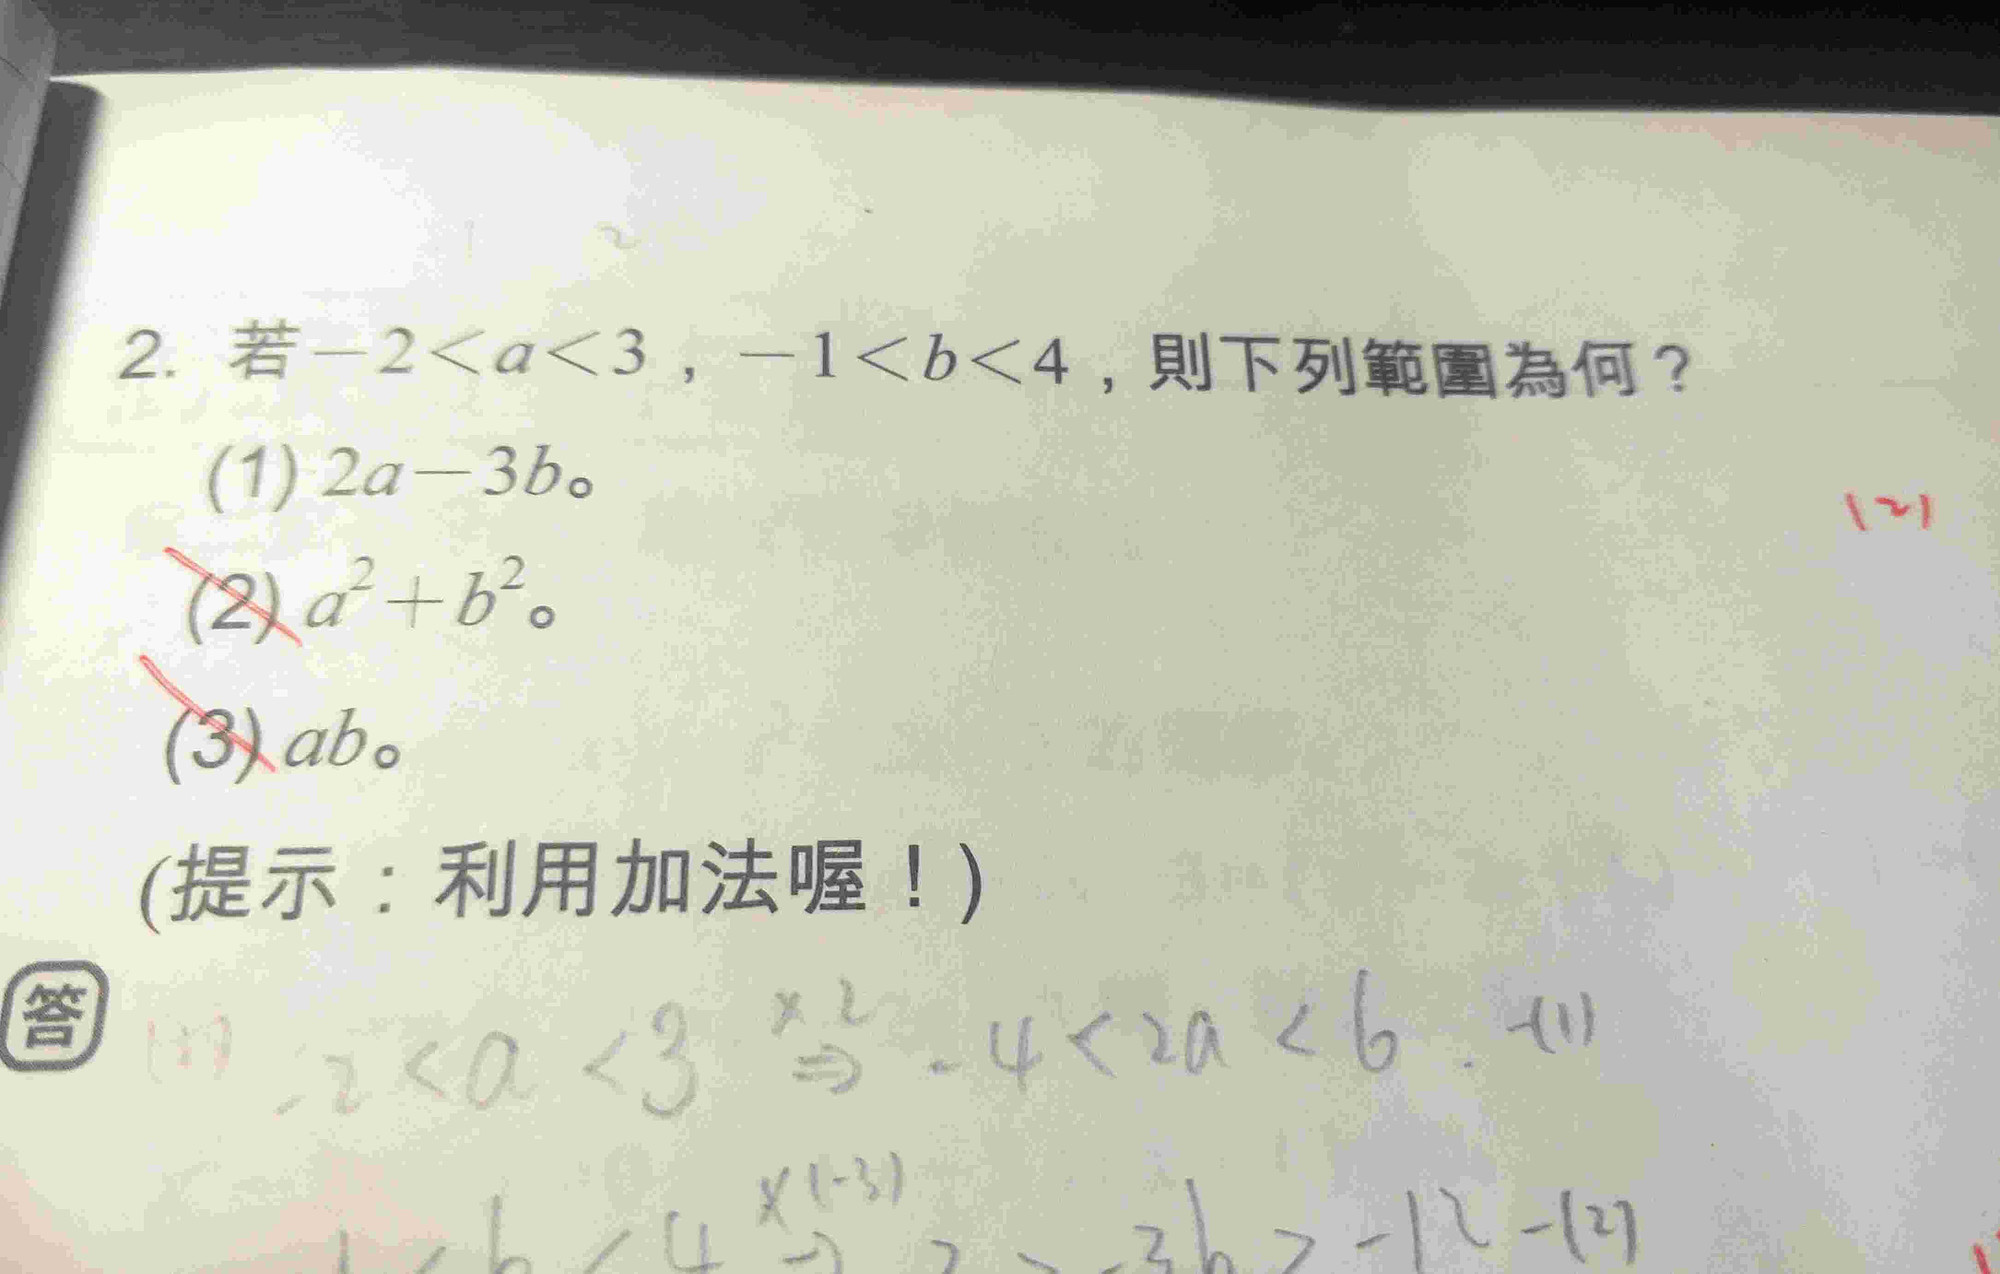 2. 若－2＜a＜3，－1＜b＜4，則下列範圍為何？
(1) 2a－3b。
(2)
(2) a²＋b²。
(3) ab。
(提示：利用加法喔！)
答 (1) -2 < a < 3 ×2 ⇒ -4 < 2a < 6. -(1)
-1 < b < 4 ×(-3) ⇒ 3 > -3b > -12 -(2)